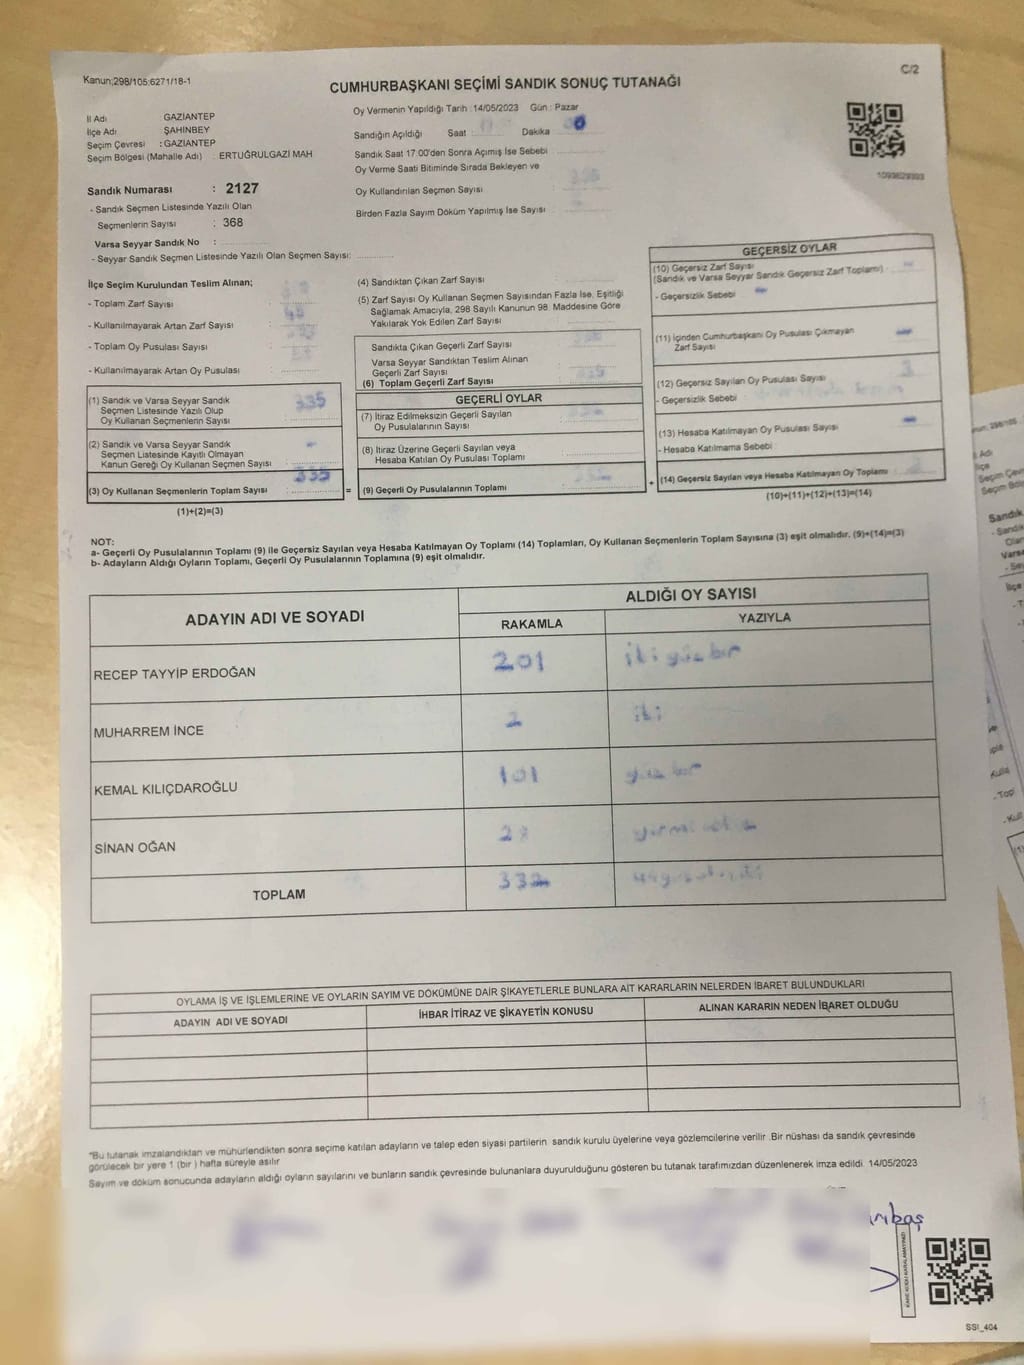 Kanun;298/105;6271/18-1
C/2
CUMHURBAŞKANI SEÇİMİ SANDIK SONUÇ TUTANAĞI
İl Adı : GAZİANTEP
İlçe Adı : ŞAHİNBEY
Seçim Çevresi : GAZİANTEP
Seçim Bölgesi (Mahalle Adı) : ERTUĞRULGAZİ MAH
Sandık Numarası : 2127
- Sandık Seçmen Listesinde Yazılı Olan
Seçmenlerin Sayısı : 368
Varsa Seyyar Sandık No :
- Seyyar Sandık Seçmen Listesinde Yazılı Olan Seçmen Sayısı:
Oy Vermenin Yapıldığı Tarih :14/05/2023 Gün : Pazar
Sandığın Açıldığı Saat Dakika
Sandık Saat 17:00'den Sonra Açımış İse Sebebi
Oy Verme Saati Bitiminde Sırada Bekleyen ve
Oy Kullandırılan Seçmen Sayısı
Birden Fazla Sayım Döküm Yapılmış İse Sayısı
1093629393
İlçe Seçim Kurulundan Teslim Alınan;
- Toplam Zarf Sayısı
- Kullanılmayarak Artan Zarf Sayısı
- Toplam Oy Pusulası Sayısı
- Kullanılmayarak Artan Oy Pusulası
(1) Sandık ve Varsa Seyyar Sandık
Seçmen Listesinde Yazılı Olup
Oy Kullanan Seçmenlerin Sayısı 335
(2) Sandık ve Varsa Seyyar Sandık
Seçmen Listesinde Kayıtlı Olmayan
Kanun Gereği Oy Kullanan Seçmen Sayısı -
(3) Oy Kullanan Seçmenlerin Toplam Sayısı : 335
(1)+(2)=(3)
=
(4) Sandıktan Çıkan Zarf Sayısı
(5) Zarf Sayısı Oy Kullanan Seçmen Sayısından Fazla İse, Eşitliği
Sağlamak Amacıyla, 298 Sayılı Kanunun 98. Maddesine Göre
Yakılarak Yok Edilen Zarf Sayısı
Sandıkta Çıkan Geçerli Zarf Sayısı
Varsa Seyyar Sandıktan Teslim Alınan
Geçerli Zarf Sayısı
(6) Toplam Geçerli Zarf Sayısı 335
GEÇERLİ OYLAR
(7) İtiraz Edilmeksizin Geçerli Sayılan
Oy Pusulalarının Sayısı
(8) İtiraz Üzerine Geçerli Sayılan veya
Hesaba Katılan Oy Pusulası Toplamı
(9) Geçerli Oy Pusulalarının Toplamı
+
GEÇERSİZ OYLAR
(10) Geçersiz Zarf Sayısı
(Sandık ve Varsa Seyyar Sandık Geçersiz Zarf Toplamı)
- Geçersizlik Sebebi
(11) İçinden Cumhurbaşkanı Oy Pusulası Çıkmayan
Zarf Sayısı
(12) Geçersiz Sayılan Oy Pusulası Sayısı 3
- Geçersizlik Sebebi
(13) Hesaba Katılmayan Oy Pusulası Sayısı
- Hesaba Katılmama Sebebi
(14) Geçersiz Sayılan veya Hesaba Katılmayan Oy Toplamı
(10)+(11)+(12)+(13)=(14)
NOT:
a- Geçerli Oy Pusulalarının Toplamı (9) ile Geçersiz Sayılan veya Hesaba Katılmayan Oy Toplamı (14) Toplamları, Oy Kullanan Seçmenlerin Toplam Sayısına (3) eşit olmalıdır. (9)+(14)=(3)
b- Adayların Aldığı Oyların Toplamı, Geçerli Oy Pusulalarının Toplamına (9) eşit olmalıdır.
ADAYIN ADI VE SOYADI
ALDIĞI OY SAYISI
RAKAMLA YAZIYLA
RECEP TAYYİP ERDOĞAN 201 iki yüz bir
MUHARREM İNCE 2 iki
KEMAL KILIÇDAROĞLU 101 yüz bir
SİNAN OĞAN 28 yirmi sekiz
TOPLAM 332
OYLAMA İŞ VE İŞLEMLERİNE VE OYLARIN SAYIM VE DÖKÜMÜNE DAİR ŞİKAYETLERLE BUNLARA AİT KARARLARIN NELERDEN İBARET BULUNDUKLARI
ADAYIN ADI VE SOYADI İHBAR İTİRAZ VE ŞİKAYETİN KONUSU ALINAN KARARIN NEDEN İBARET OLDUĞU
*Bu tutanak imzalandıktan ve mühürlendikten sonra seçime katılan adayların ve talep eden siyasi partilerin sandık kurulu üyelerine veya gözlemcilerine verilir .Bir nüshası da sandık çevresinde
görülecek bir yere 1 (bir ) hafta süreyle asılır
Sayım ve döküm sonucunda adayların aldığı oyların sayılarını ve bunların sandık çevresinde bulunanlara duyurulduğunu gösteren bu tutanak tarafımızdan düzenlenerek imza edildi. 14/05/2023
SSI_404